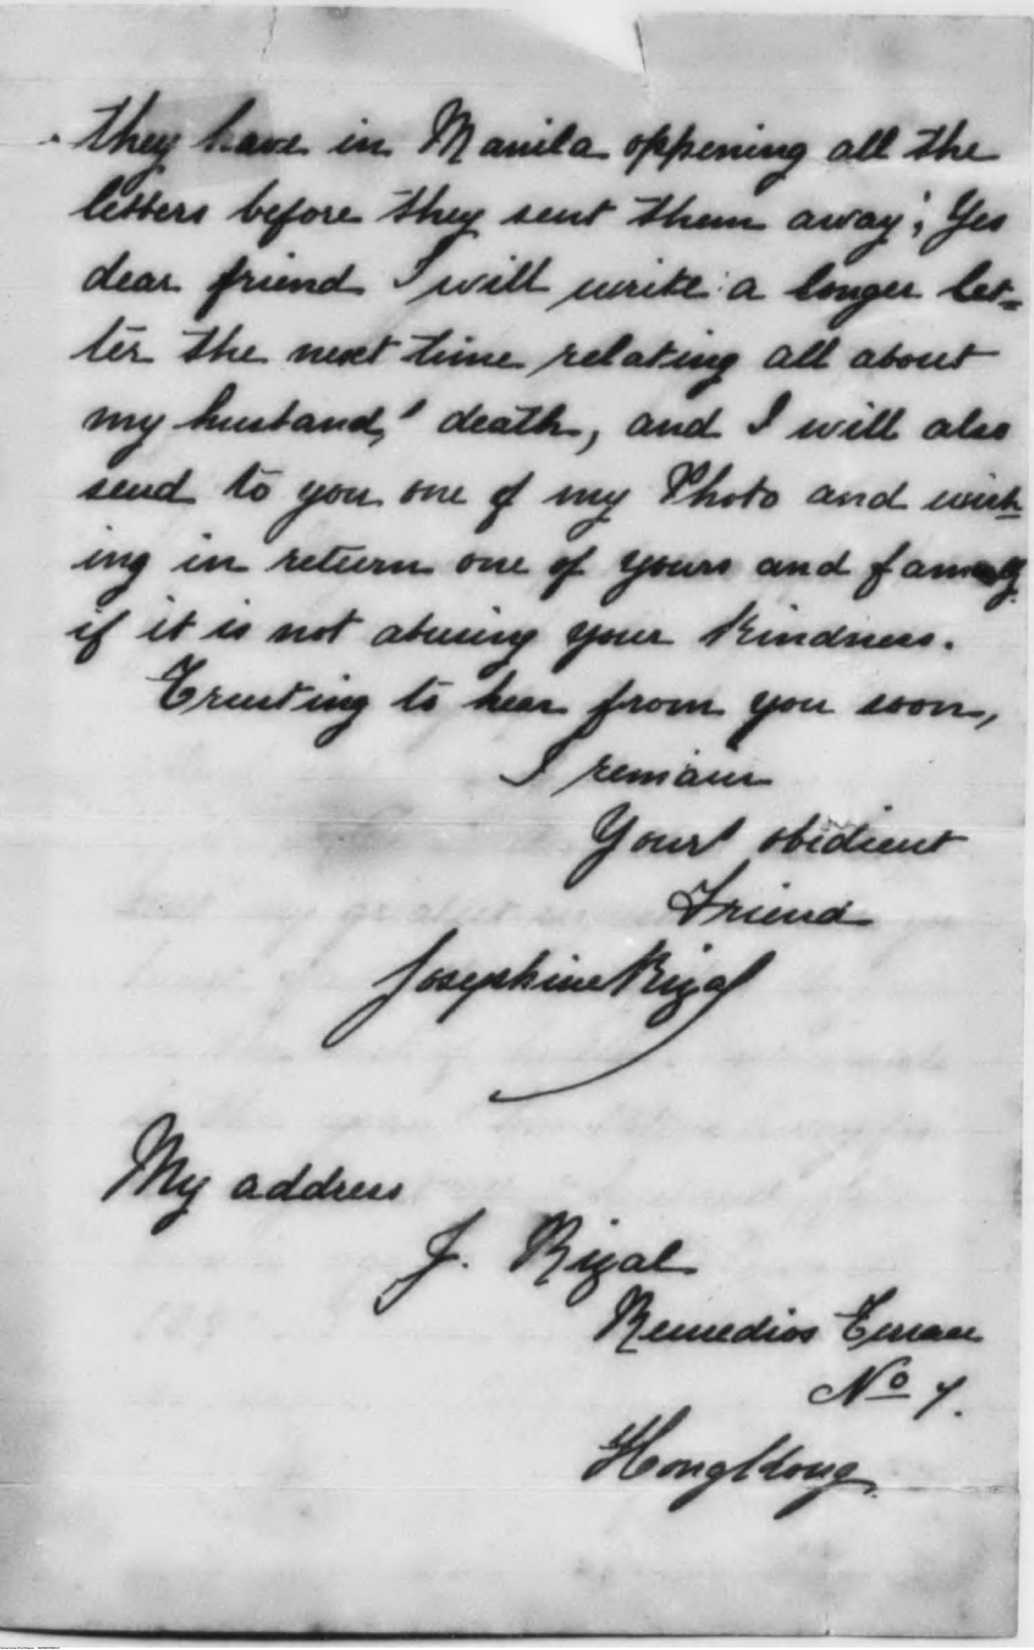 they have in Manila oppening all the
letters before they sent them away; Yes
dear friend I will write a longer let=
ter the next time relating all about
my husband,' death, and I will also
send to you one of my Photo and wish-
ing in return one of yours and family
if it is not abusing your kindness.
Trusting to hear from you soon,
I remain
Your' obidient
Friend
Josephine Rizal
My address
J. Rizal
Remedios Terrace
No 7.
HongKong.